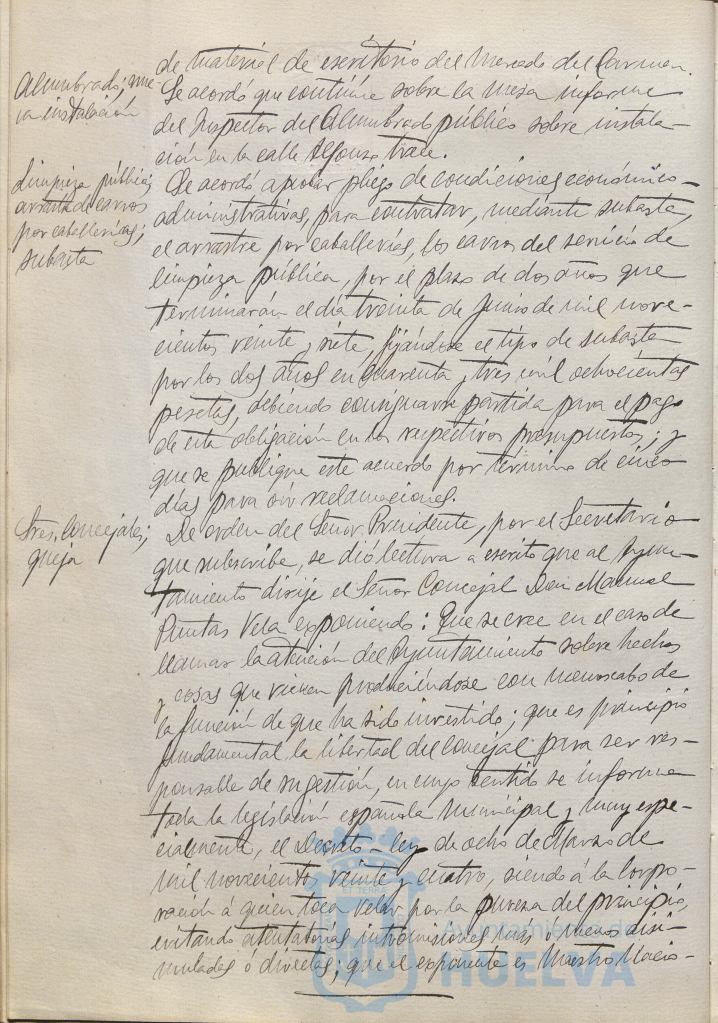 de material de escritorio del Mercado del Carmen.
Alumbrado; nue-
va instalación
Se acordó que continúe sobre la mesa informe
del Inspector del Alumbrado público sobre instala-
ción en la calle Alfonso trece.
Limpieza pública;
arrastre de carros
por caballerías;
subasta
Se acordó aprobar pliego de condiciones económico-
administrativas, para contratar, mediante subasta,
el arrastre por caballerías, los carros del servicio de
limpieza pública, por el plazo de dos años que
terminarán el día treinta de Junio de mil nove-
cientos veinte y siete, fijándose el tipo de subasta
por los dos años en cuarenta y tres mil ochocientas
pesetas, debiendo consignarse partida para el pago
de esta obligación en los respectivos presupuestos; y
que se publique este acuerdo por término de cinco
días para oír reclamaciones.
Sres. Concejales;
queja
De orden del Señor Presidente, por el Secretario
que subscribe, se dió lectura a escrito que al Ayun-
tamiento dirije el Señor Concejal Don Manuel
Puntas Vela exponiendo: Que se cree en el caso de
llamar la atención del Ayuntamiento sobre hechos
y cosas que vienen produciéndose con menoscabo de
la función de que ha sido investido; que es principio
fundamental la libertad del concejal para ser res-
ponsable de su gestión, en cuyo sentido se informa
toda la legislación española municipal y muy espe-
cialmente, el Decreto-ley de ocho de Marzo de
mil novecientos veinte y cuatro, siendo á la Corpo-
ración á quien toca velar por la pureza del principio,
evitando atentatorias intromisiones más ó menos disi-
muladas ó directas; que el exponente es Maestro Nacio-
Ayuntamiento de
HUELVA